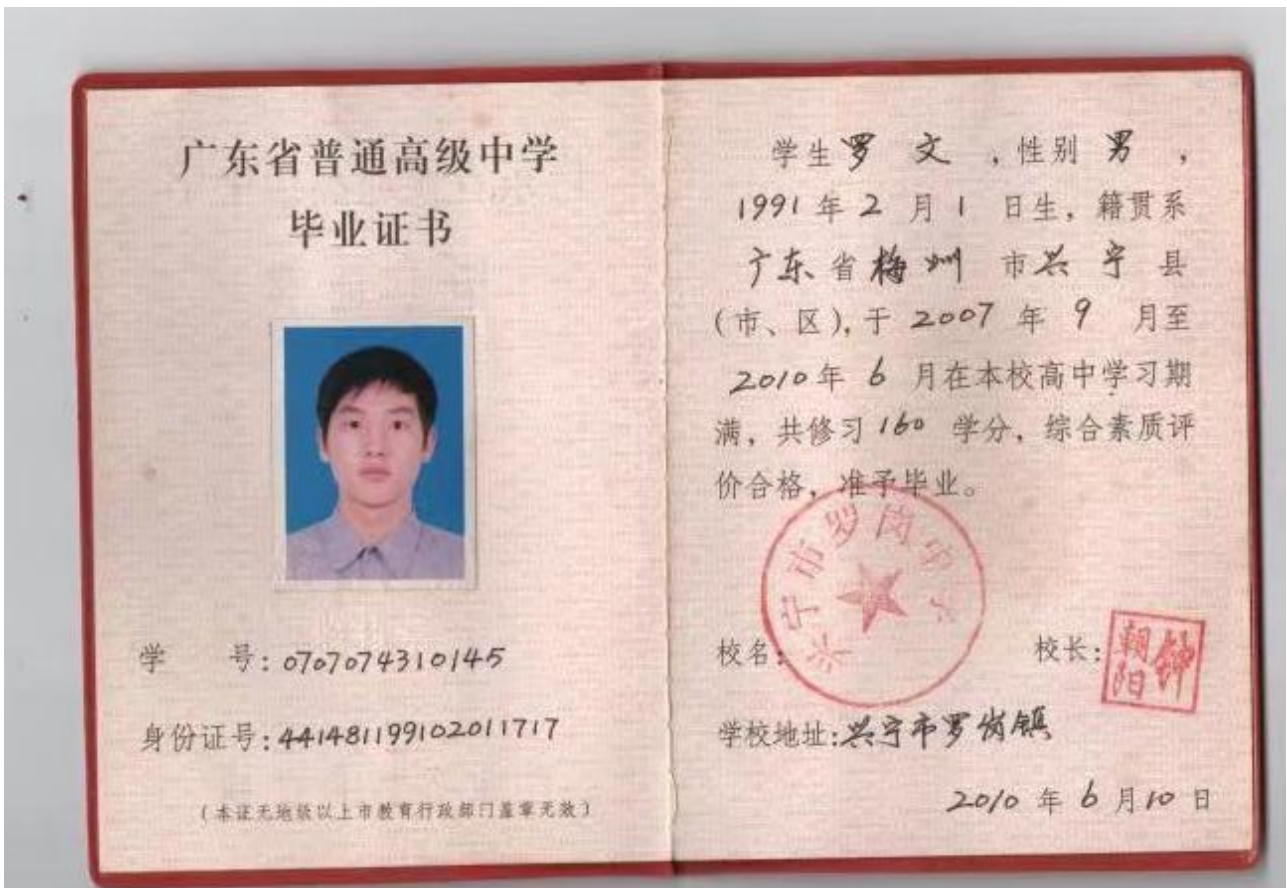 广东省普通高级中学
毕业证书
学 号:0707074310145
身份证号:441481199102011717
(本证无地级以上市教育行政部门盖章无效)
学生罗文,性别男,
1991年2月1日生,籍贯系
广东省梅州市兴宁县
(市、区),于2007年9月至
2010年6月在本校高中学习期
满,共修习160学分,综合素质评
价合格,准予毕业。
兴宁市罗岗中学
校名: 校长:钟朝阳
学校地址:兴宁市罗岗镇
2010年6月10日